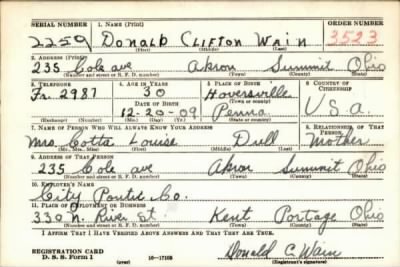 SERIAL NUMBER 1. NAME (Print) ORDER NUMBER
2259 Donald Clifton Wain 3523
(First) (Middle) (Last)
2. ADDRESS (Print)
235 Cole ave Akron Summit Ohio
(Number and street or R. F. D. number) (Town) (County) (State)
3. TELEPHONE 4. AGE IN YEARS 5. PLACE OF BIRTH 6. COUNTRY OF CITIZENSHIP
Fr. 2987 30 Hooversville U.S.a.
DATE OF BIRTH (Town or county)
12-20-09 Penna
(Exchange) (Number) (Mo.) (Day) (Yr.) (State or country)
7. NAME OF PERSON WHO WILL ALWAYS KNOW YOUR ADDRESS 8. RELATIONSHIP OF THAT PERSON
Mrs. Cotta Louise Dull Mother
(Mr., Mrs., Miss) (First) (Middle) (Last)
9. ADDRESS OF THAT PERSON
235 Cole ave Akron Summit Ohio
(Number and street or R. F. D. number) (Town) (County) (State)
10. EMPLOYER'S NAME
City Pontic Co.
11. PLACE OF EMPLOYMENT OR BUSINESS
330 N. River St. Kent Portage Ohio
(Number and street or R. F. D. number) (Town) (County) (State)
I AFFIRM THAT I HAVE VERIFIED ABOVE ANSWERS AND THAT THEY ARE TRUE.
REGISTRATION CARD
D. S. S. Form 1 (over) 16—17105 Donald C. Wain
(Registrant's signature)